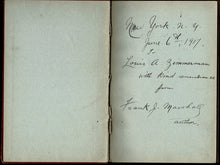 New York N.Y.
June 6th, 1917.
To
Louis A Zimmerman
with kind remembrances
from
Frank J. Marshall
author.